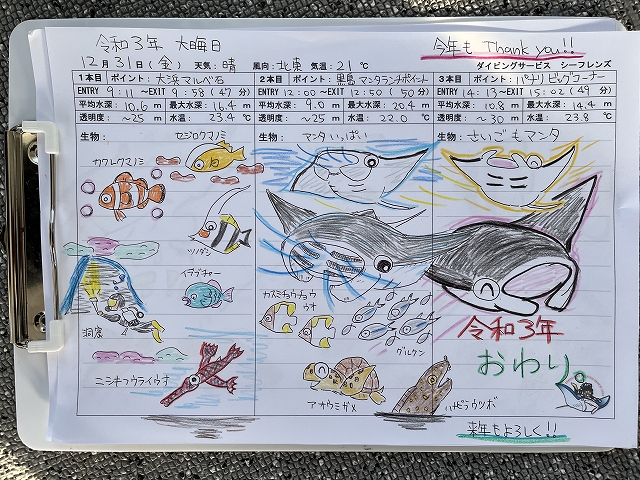 令和3年 大晦日
今年も Thank you!!
12月31日(金) 天気:晴 風向:北東 気温:21℃ ダイビングサービス シーフレンズ
1本目 ポイント:大浜マルベ石
ENTRY 9:11 ~EXIT 9:58 (47分)
平均水深: 10.6 m 最大水深: 16.4 m
透明度: ~25 m 水温: 23.4 ℃
生物: セジロクマノミ
カクレクマノミ
ツノダシ
イラブチャー
洞窟
ニシキフウライウオ
2本目 ポイント:黒島マンタランチポイント
ENTRY 12:00 ~EXIT 12:50 (50分)
平均水深: 9.0 m 最大水深: 20.4 m
透明度: ~25 m 水温: 22.0 ℃
生物: マンタいっぱい
カスミチョウチョウ
ウオ
グルクン
アオウミガメ
ハナビラウツボ
3本目 ポイント:パナリ ビッグコーナー
ENTRY 14:13 ~EXIT 15:02 (49分)
平均水深: 10.8 m 最大水深: 14.4 m
透明度: ~30 m 水温: 23.8 ℃
生物: さいごもマンタ
令和3年
おわり。
来年もよろしく!!